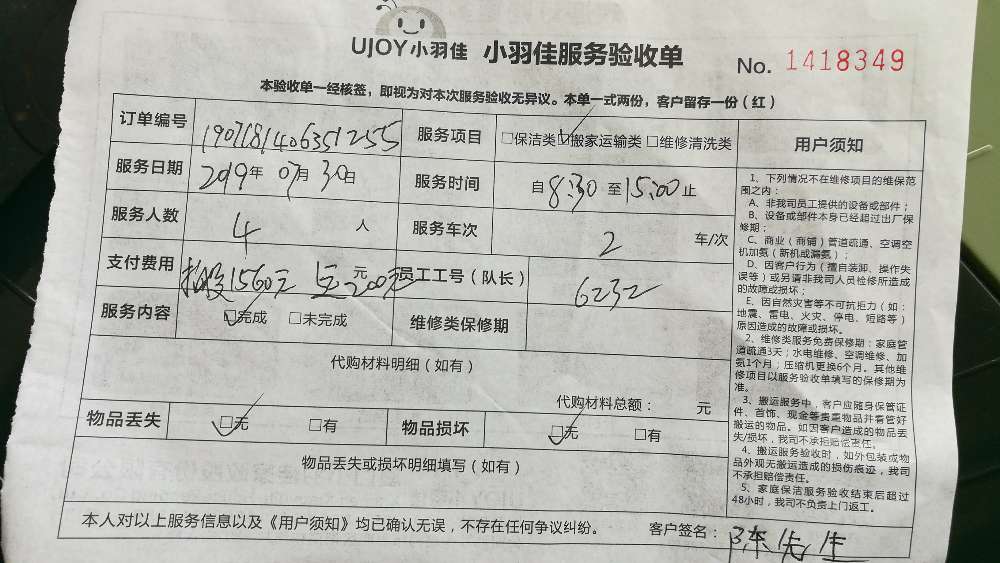 UJOY小羽佳 小羽佳服务验收单 No. 1418349
本验收单一经核签，即视为对本次服务验收无异议。本单一式两份，客户留存一份（红）
订单编号 1907181406351255 服务项目 □保洁类☑搬家运输类□维修清洗类 用户须知
服务日期 2019年 07月 30日 服务时间 自8:30至15:00止
服务人数 4 人 服务车次 2 车/次
支付费用 1560元 元 200元 员工工号（队长） 6232
服务内容 ☑完成 □未完成 维修类保修期
代购材料明细（如有）
代购材料总额： 元
物品丢失 ☑无 □有 物品损坏 ☑无 □有
物品丢失或损坏明细填写（如有）
1、下列情况不在维修项目的维保范
围之内：
A、非我司员工提供的设备或部件；
B、设备或部件本身已经超过出厂保
修期；
C、商业（商铺）管道疏通、空调空
机加氨（新机或漏氨）；
D、因客户行为（擅自装卸、操作失
误等）或另请非我司人员检修所造成
的故障或损坏；
E、因自然灾害等不可抗拒力（如：
地震、雷电、火灾、停电、短路等）
原因造成的故障或损坏。
2、维修类服务免费保修期：家庭管
道疏通3天；水电维修、空调维修、加
氨1个月；压缩机更换6个月。其他维
修项目以服务验收单填写的保修期为
准。
3、搬运服务中，客户应随身保管证
件、首饰、现金等贵重物品并看管好
搬运的物品。如因客户造成的物品丢
失/损坏，我司不承担赔偿责任。
4、搬运服务验收时，如外包装或物
品外观无搬运造成的损伤痕迹，我司
不承担赔偿责任。
5、家庭保洁服务验收结束后超过
48小时，我司不负责上门返工。
本人对以上服务信息以及《用户须知》均已确认无误，不存在任何争议纠纷。 客户签名： 陈先生